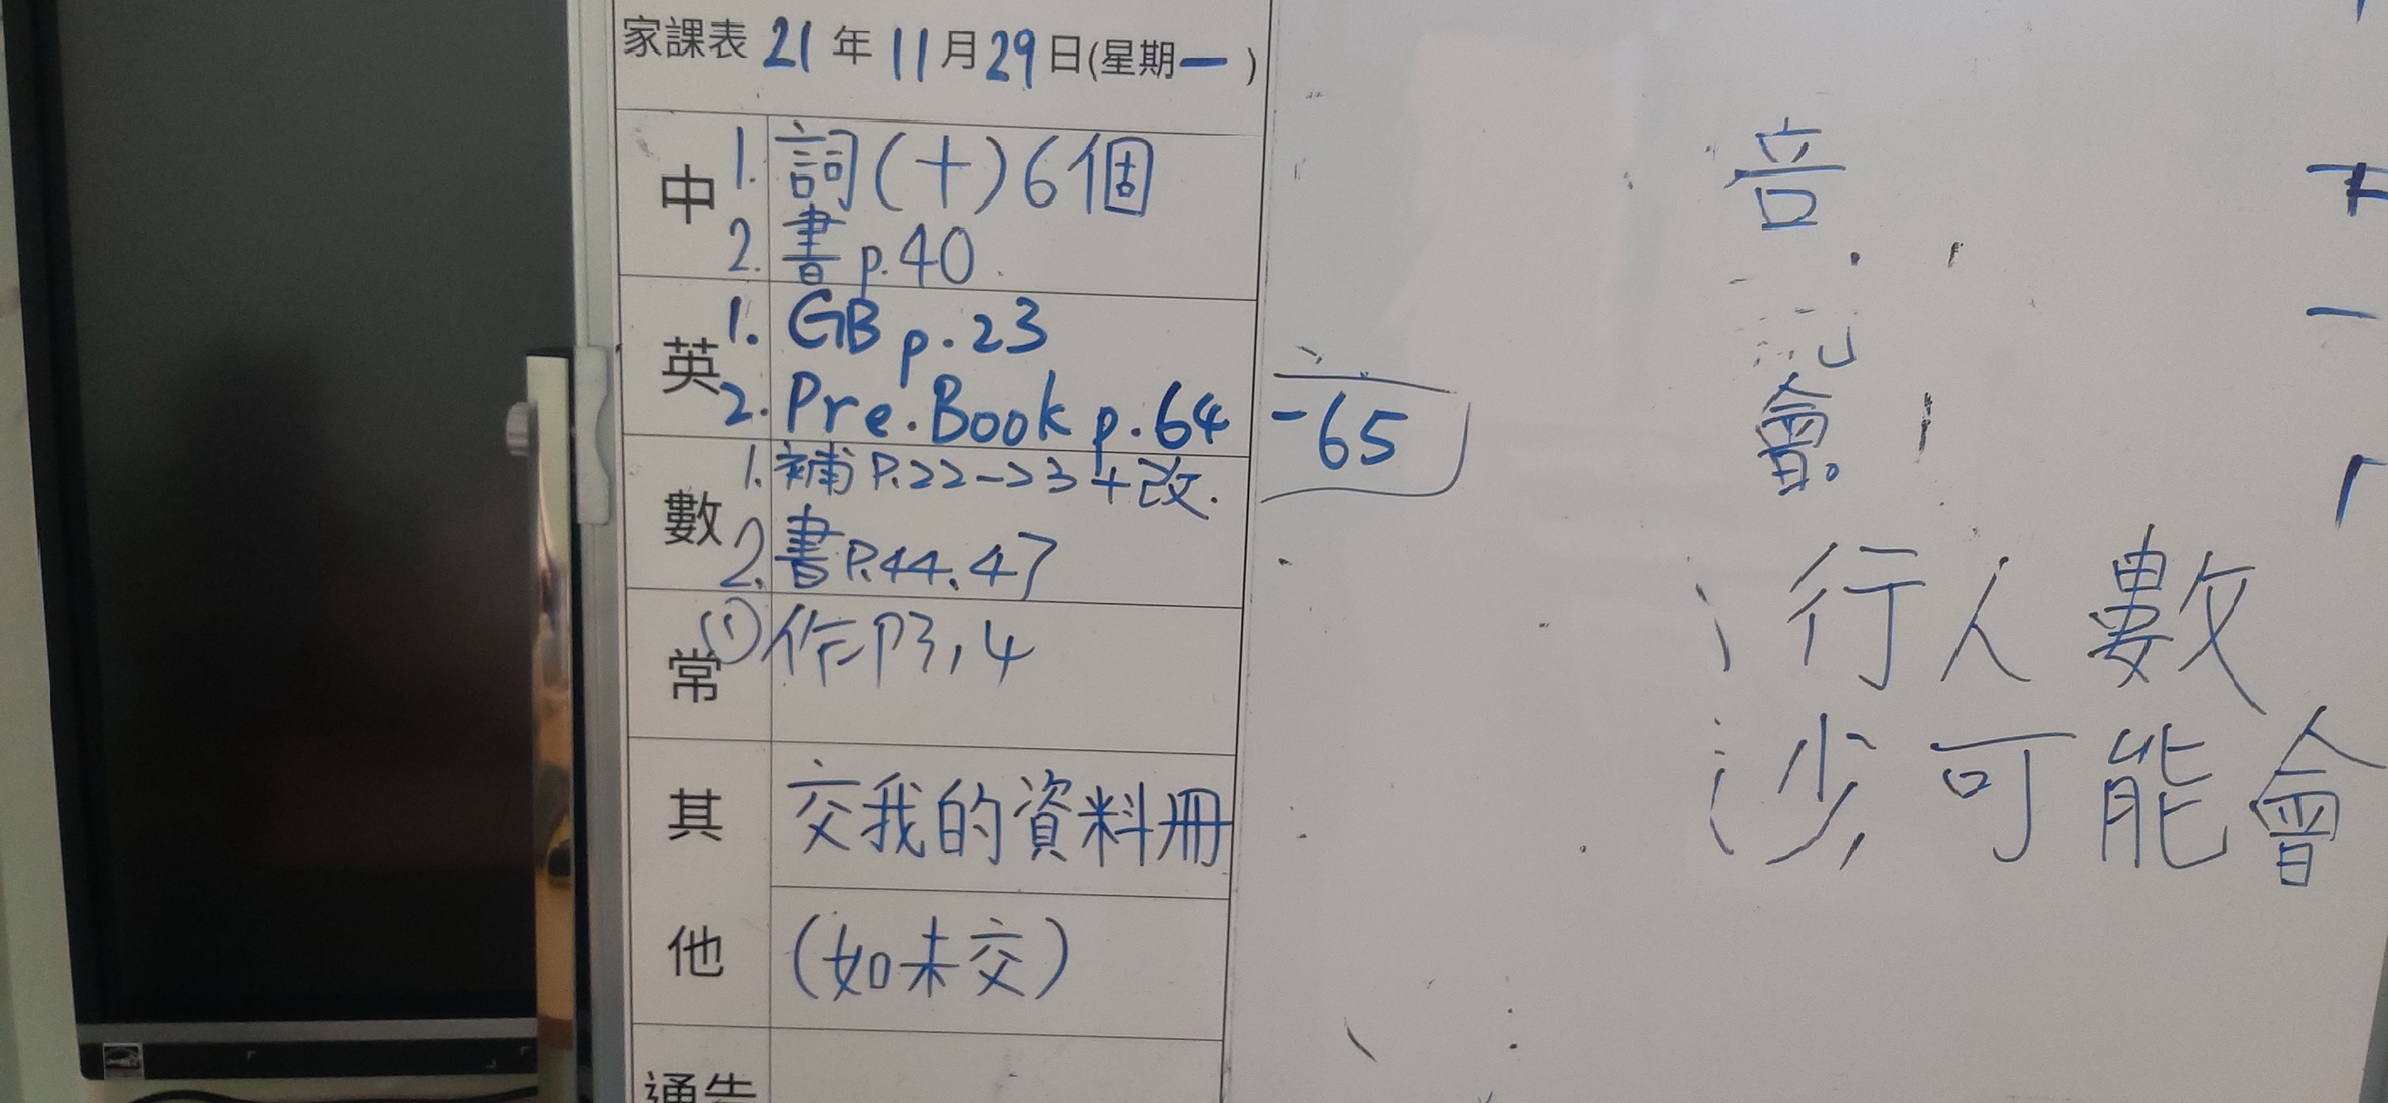 家課表 21 年 11 月 29 日(星期一)
中
1. 詞(十)6個
2. 書 p.40
英
1. GB p.23
2. Pre.Book p.64-65
數
1. 補 P.22-23+改.
2. 書P.44.47
常
① 作P3,4
其他
交我的資料冊
(如未交)
通告
音
會。
行人數
沙可能會